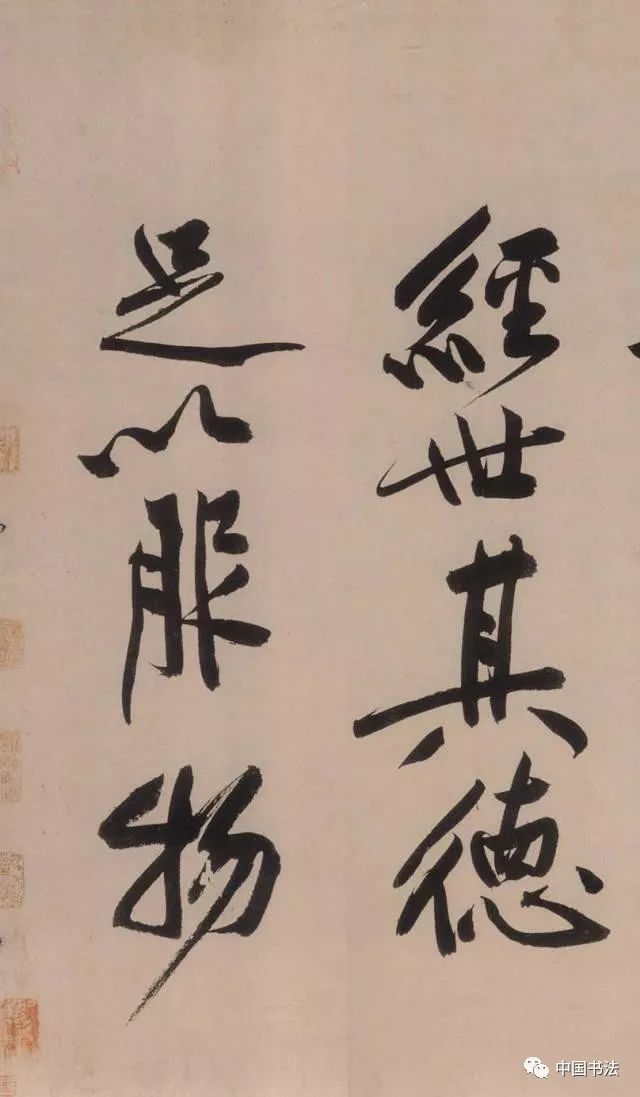 經世其德
足以服物
中国书法